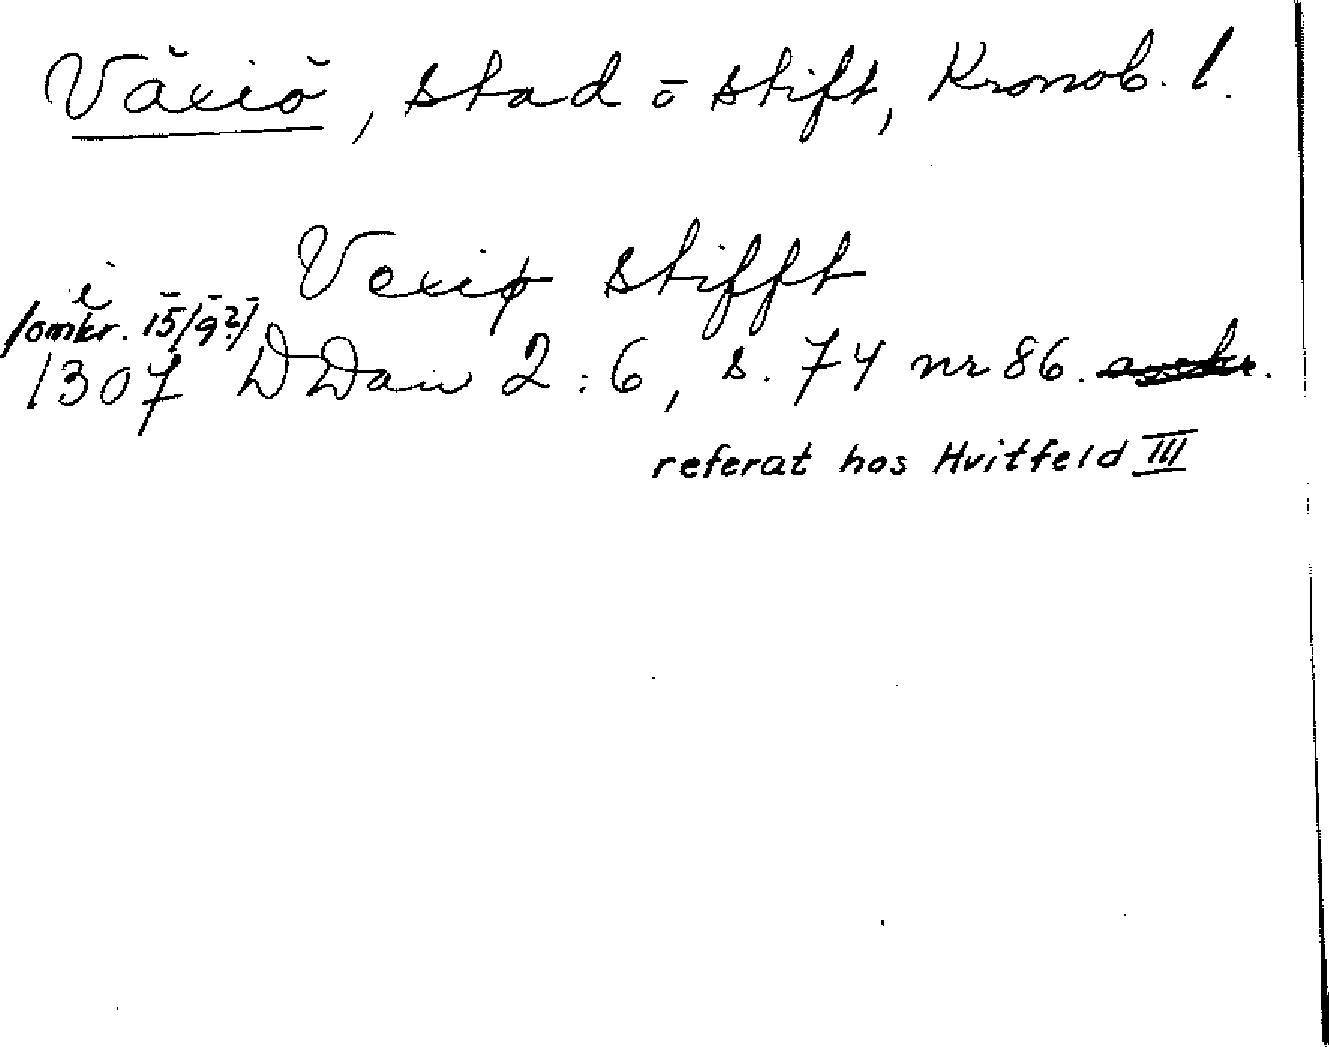 Växiö, stad o stift, Kronob. l.
i Vexiø stifft
/omkr. 15/9?/
1307 DDan 2:6, s. 74 nr 86.
referat hos Hvitfeld III